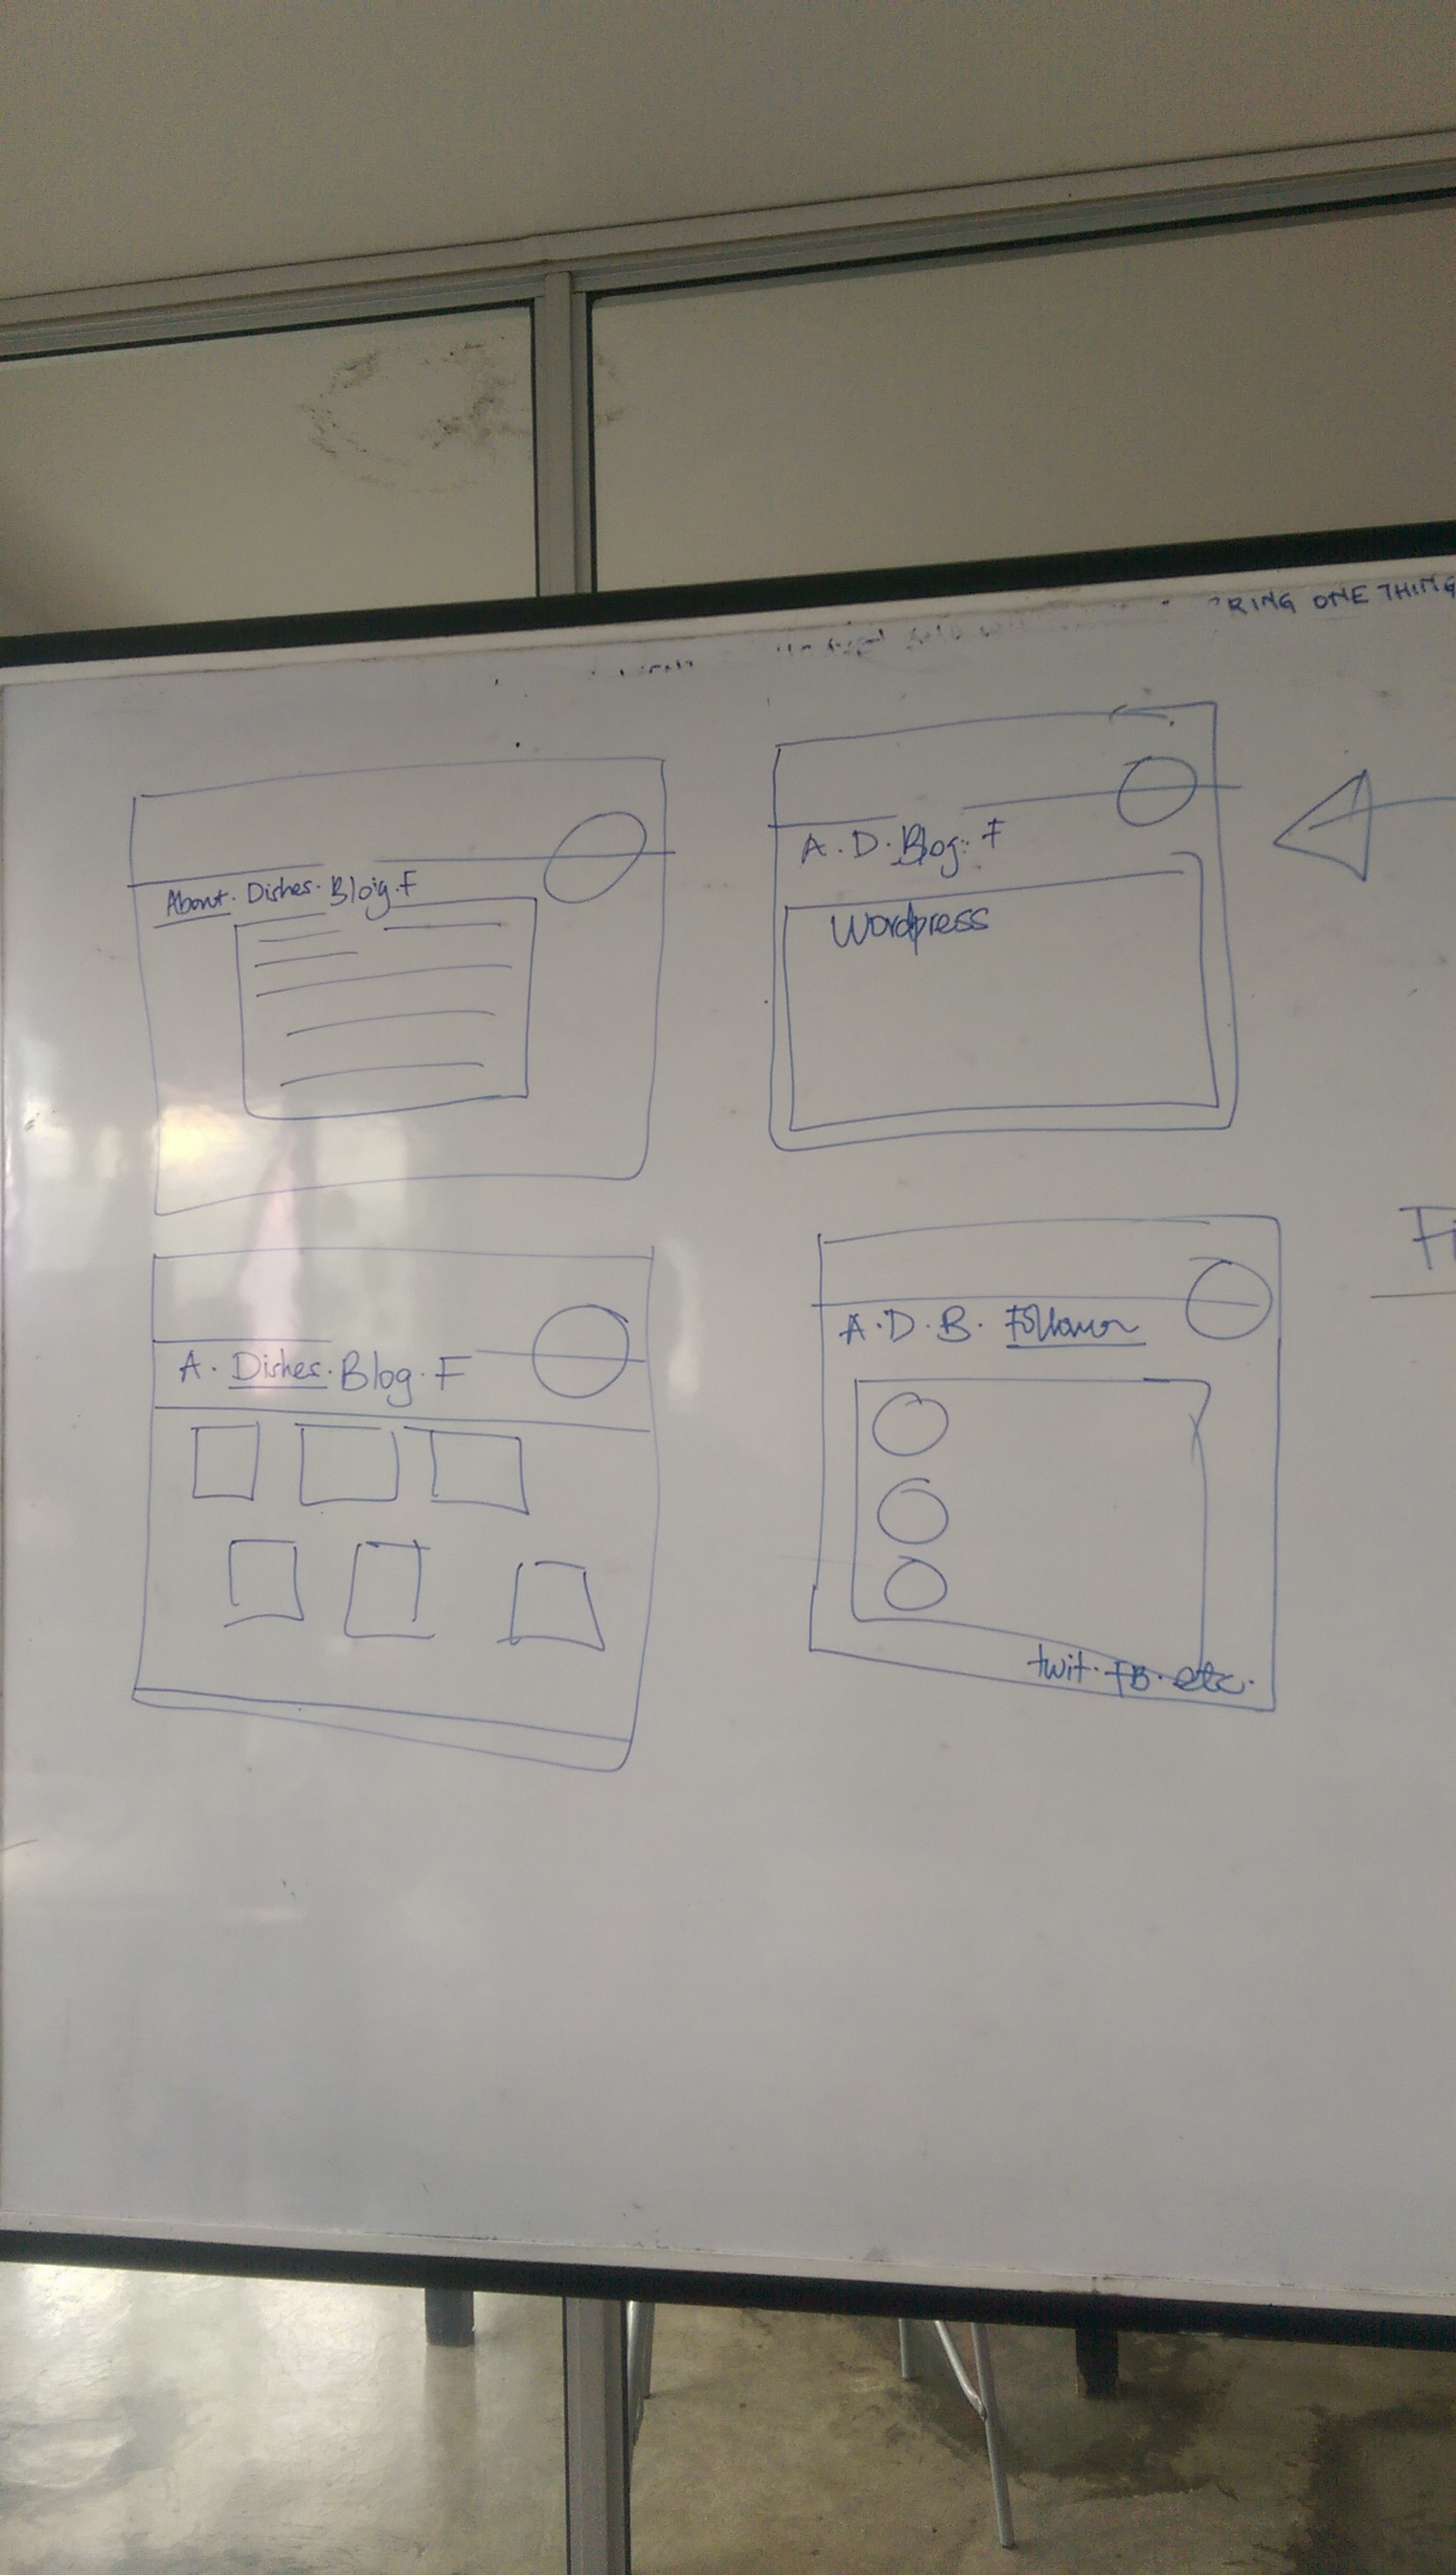 RING ONE THING
About. Dishes. Blog. F
A. D. Blog. F
Wordpress
A. Dishes. Blog. F
A. D. B. Follower
twit. FB. etc.
Fi